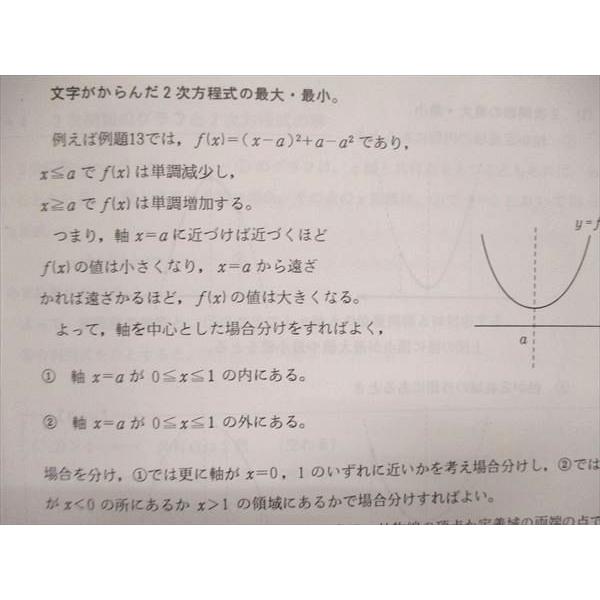 文字がからんだ2次方程式の最大・最小。
例えば例題13では，f(x)=(x−a)²+a−a² であり，
x≦a で f(x) は単調減少し，
x≧a で f(x) は単調増加する。
つまり，軸 x=a に近づけば近づくほど
f(x) の値は小さくなり，x=a から遠ざ
かれば遠ざかるほど，f(x) の値は大きくなる。
よって，軸を中心とした場合分けをすればよく，
① 軸 x=a が 0≦x≦1 の内にある。
② 軸 x=a が 0≦x≦1 の外にある。
場合を分け，①では更に軸が x=0，1 のいずれに近いかを考え場合分けし，②では
が x<0 の所にあるか x>1 の領域にあるかで場合分けすればよい。
の頂点か定義域の両端の点で
y=f
a